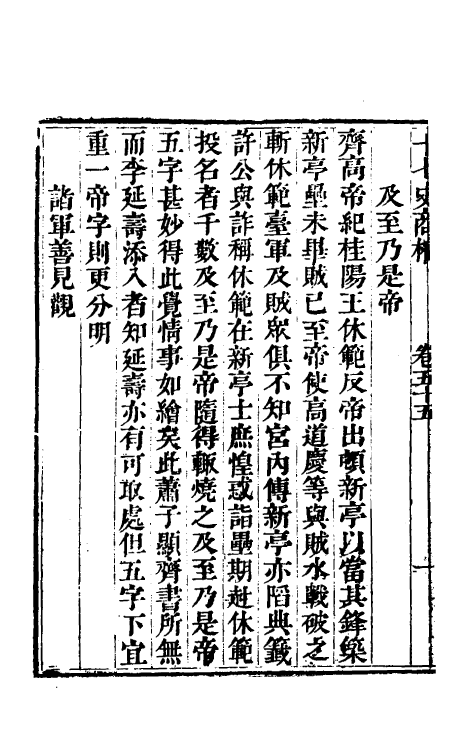 十七史商榷 卷五十五 一
及至乃是帝
齊高帝紀桂陽王休範反帝出頓新亭以當其鋒築
新亭壘未畢賊已至帝使高道慶等與賊水戰破之
斬休範臺軍及賊衆俱不知宮內傳新亭亦陷典籤
許公與詐稱休範在新亭士庶惶惑詣壘期赴休範
投名者千數及至乃是帝隨得輒燒之及至乃是帝
五字甚妙得此覺情事如繪矣此蕭子顯齊書所無
而李延壽添入者知延壽亦有可取處但五字下宜
重一帝字則更分明
諸軍善見觀